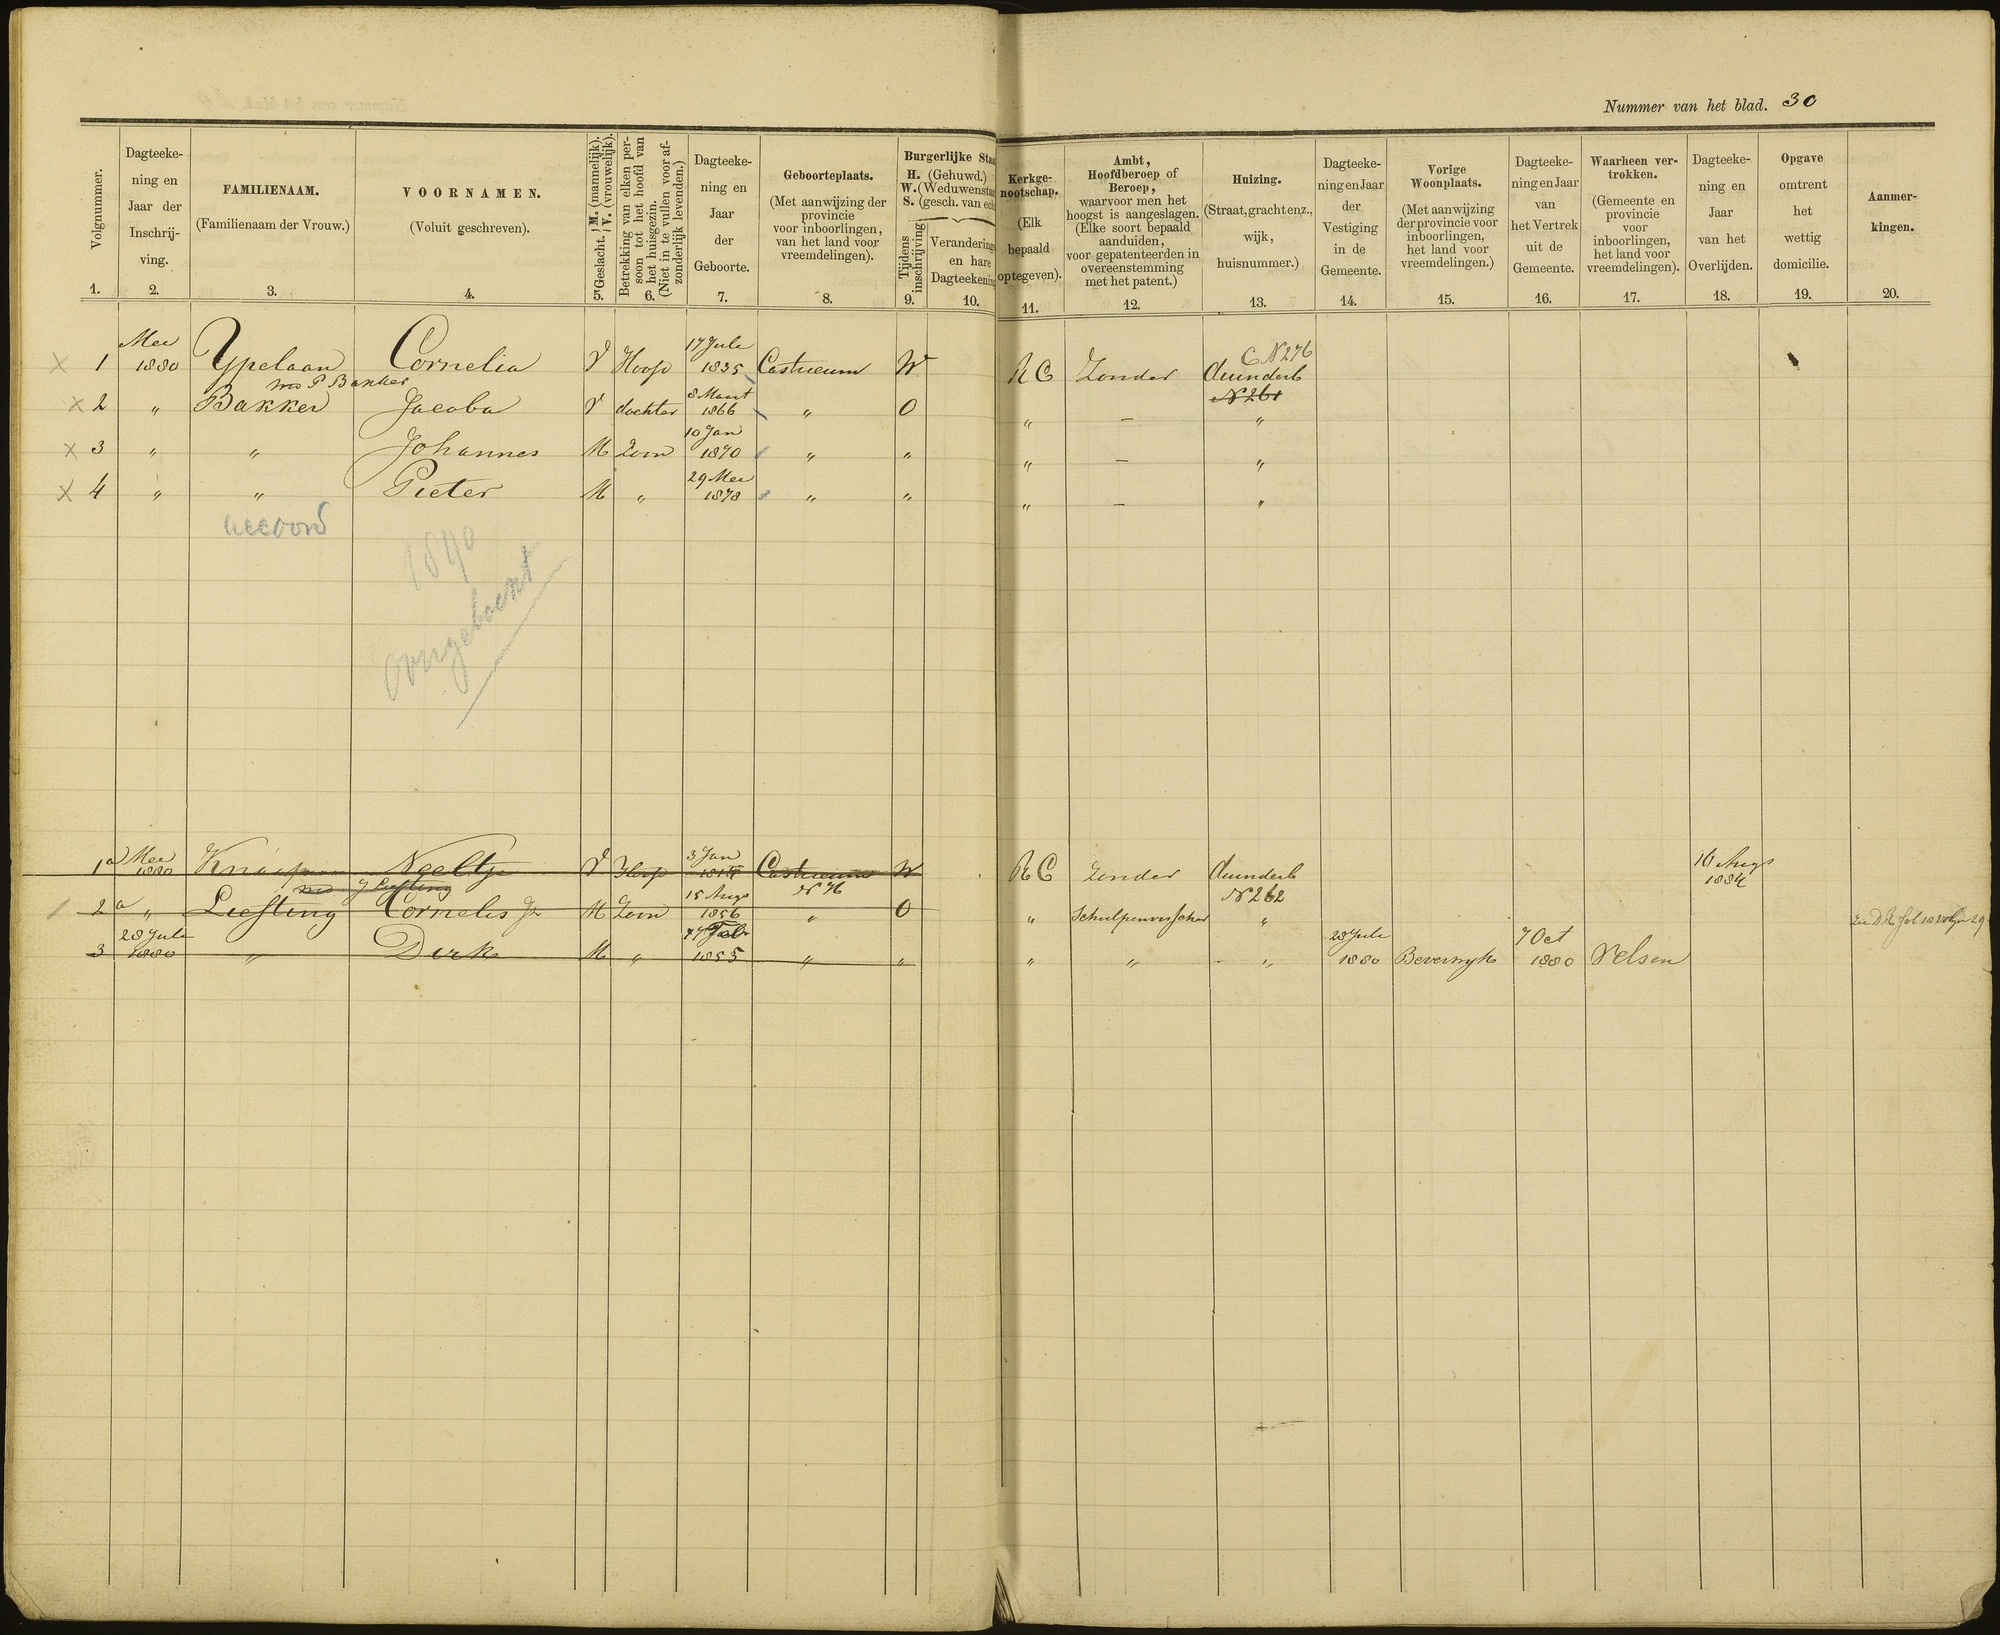 Nummer van het blad. 30
Volgnummer.
1.
Dagteeke-
ning en
Jaar der
Inschrij-
ving.
2.
FAMILIENAAM.
(Familienaam der Vrouw.)
3.
VOORNAMEN.
(Voluit geschreven).
4.
Geslacht. M. (mannelijk). V. (vrouwelijk).
5.
Betrekking van elken per-
soon tot het hoofd van
het huisgezin.
(Niet in te vullen voor af-
zonderlijk levenden.)
6.
Dagteeke-
ning en
Jaar
der
Geboorte.
7.
Geboorteplaats.
(Met aanwijzing der
provincie
voor inboorlingen,
van het land voor
vreemdelingen).
8.
Burgerlijke Staa
H. (Gehuwd.)
W. (Weduwensta
S. (gesch. van ech
Tijdens
inschrijving
9.
Verandering
en hare
Dagteekening
10.
Kerkge-
nootschap.
(Elk
bepaald
optegeven).
11.
Ambt,
Hoofdberoep of
Beroep,
waarvoor men het
hoogst is aangeslagen.
(Elke soort bepaald
aanduiden,
voor gepatenteerden in
overeenstemming
met het patent.)
12.
Huizing.
(Straat, gracht enz.,
wijk,
huisnummer.)
13.
Dagteeke-
ning en Jaar
der
Vestiging
in de
Gemeente.
14.
Vorige
Woonplaats.
(Met aanwijzing
der provincie voor
inboorlingen,
het land voor
vreemdelingen.)
15.
Dagteeke-
ning en Jaar
van
het Vertrek
uit de
Gemeente.
16.
Waarheen ver-
trokken.
(Gemeente en
provincie
voor
inboorlingen,
het land voor
vreemdelingen).
17.
Dagteeke-
ning en
Jaar
van het
Overlijden.
18.
Opgave
omtrent
het
wettig
domicilie.
19.
Aanmer-
kingen.
20.
x 1 Mei 1880 Ypelaan Cornelia V Hoofd 17 Julij 1835 Castricum W R C Zonder duinderb C N 276
wed P Bakker
N 261
x 2 " Bakker Jacoba V dochter 8 Maart 1866 " O " – "
x 3 " " Johannes M Zoon 10 Jan 1870 " " " – "
x 4 " " Pieter M " 29 Mei 1878 " " " – "
accoord
1890
overgeboekt
1a Mei 1880 Knaap Neeltje V Hoofd 3 Jan Castricum W R C Zonder duinderb N 262 16 Augs 1884
wed J Liefting
N 76
2a " Liefting Cornelis Jz M Zoon 15 Augs 1856 " O " Schulpenvisscher "
3 28 Julij 1880 " Dirk M " 1855 " " " " " 28 Julij 1880 Beverwijk 7 Oct 1880 Velsen